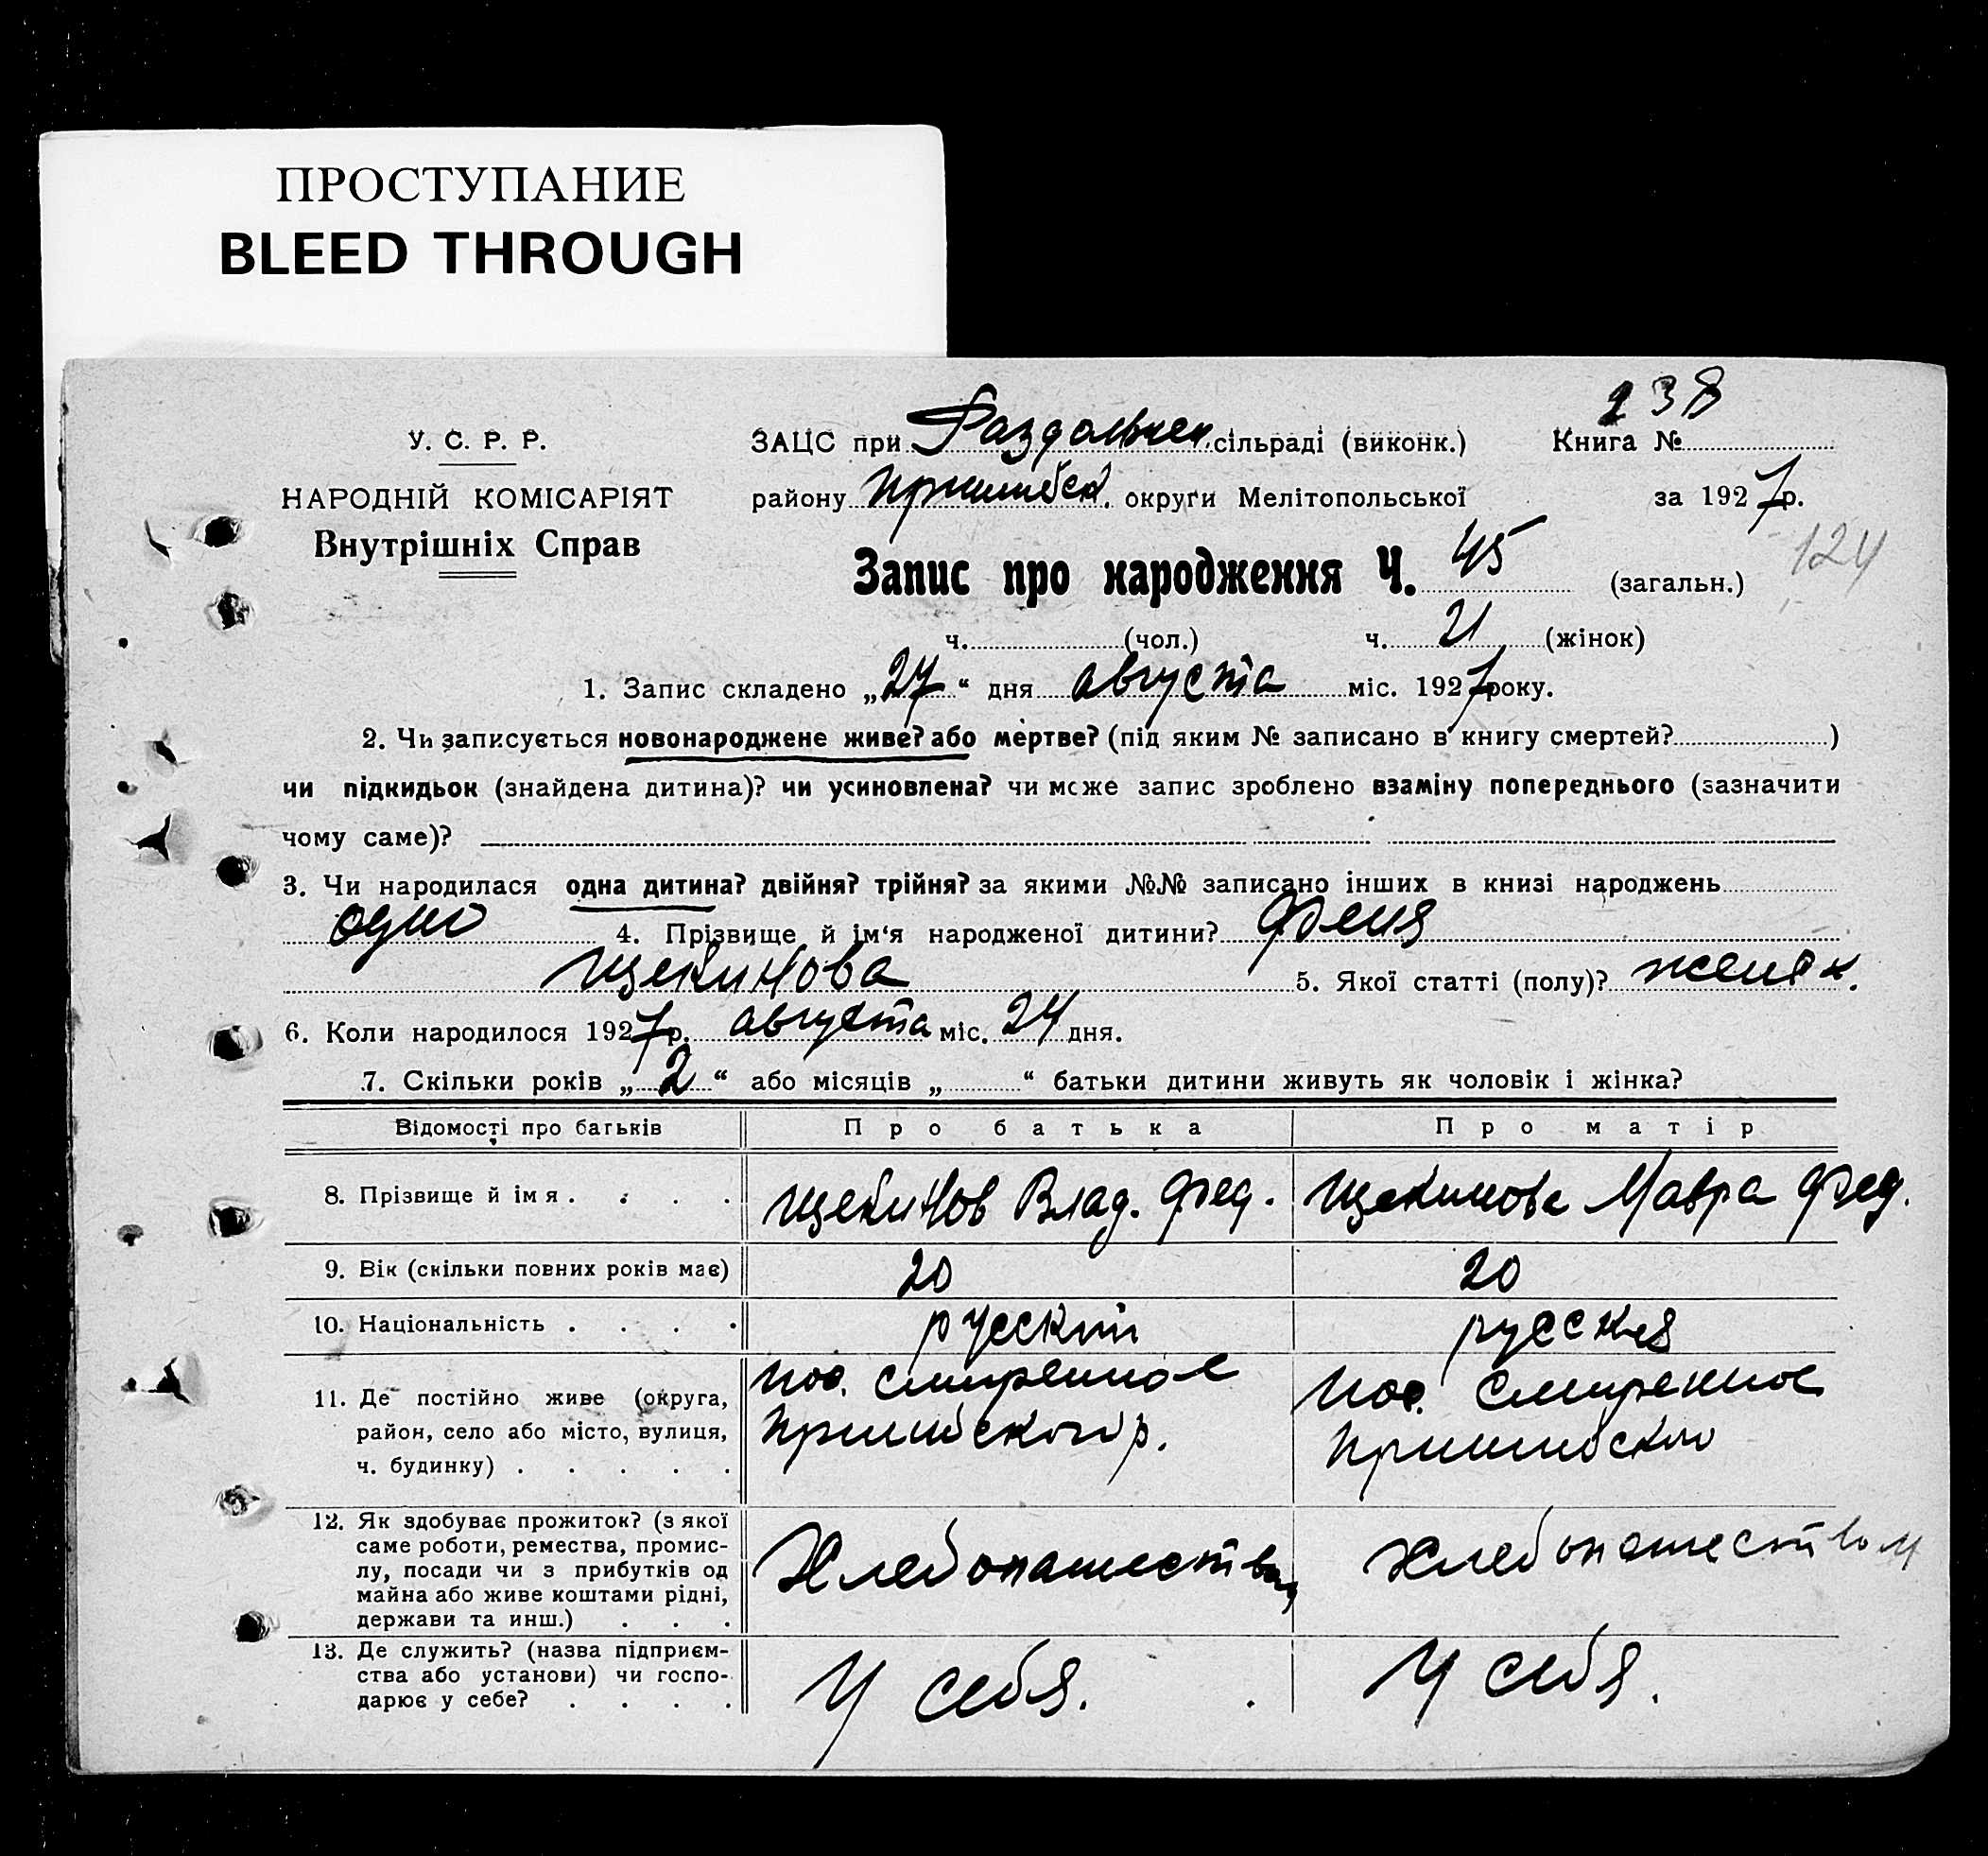 ПРОСТУПАНИЕ
BLEED THROUGH
238
У. С. Р. Р.
ЗАЦС при Раздольнен. сільраді (виконк.) Книга №
НАРОДНІЙ КОМІСАРІЯТ
району Пришибск. округи Мелітопольської за 1927 р.
Внутрішніх Справ
124
Запис про народження Ч. 45 (загальн.)
ч. (чол.) ч. 21 (жінок)
1. Запис складено „27“ дня августа міс. 1927 року.
2. Чи записується новонароджене живе? або мертве? (під яким № записано в книгу смертей? )
чи підкидьок (знайдена дитина)? чи усиновлена? чи може запис зроблено взаміну попереднього (зазначити
чому саме)?
3. Чи народилася одна дитина? двійня? трійня? за якими №№ записано інших в книзі народжень
одно 4. Прізвище й ім‘я народженої дитини? Феня
Щекинова 5. Якої статті (полу)? женск.
6. Коли народилося 1927 р. августа міс. 24 дня.
7. Скільки років „2“ або місяців „ “ батьки дитини живуть як чоловік і жінка?
Відомості про батьків Про батька Про матір
8. Прізвище й імя . . . . Щекинов Влад. Фед. Щекинова Мавра Фед.
9. Вік (скільки повних років має) 20 20
10. Національність . . . . русский русская
11. Де постійно живе (округа,
район, село або місто, вулиця,
ч. будинку) . . . . .
пос. Смиренное
Пришибского р.
пос. Смиренное
Пришибского
12. Як здобуває прожиток? (з якої
саме роботи, ремества, промис-
лу, посади чи з прибутків од
майна або живе коштами рідні,
держави та инш.) . . .
Хлебопашеством
Хлебопашеством
13. Де служить? (назва підприєм-
ства або установи) чи госпо-
дарює у себе? . . . .
У себя.
У себя.